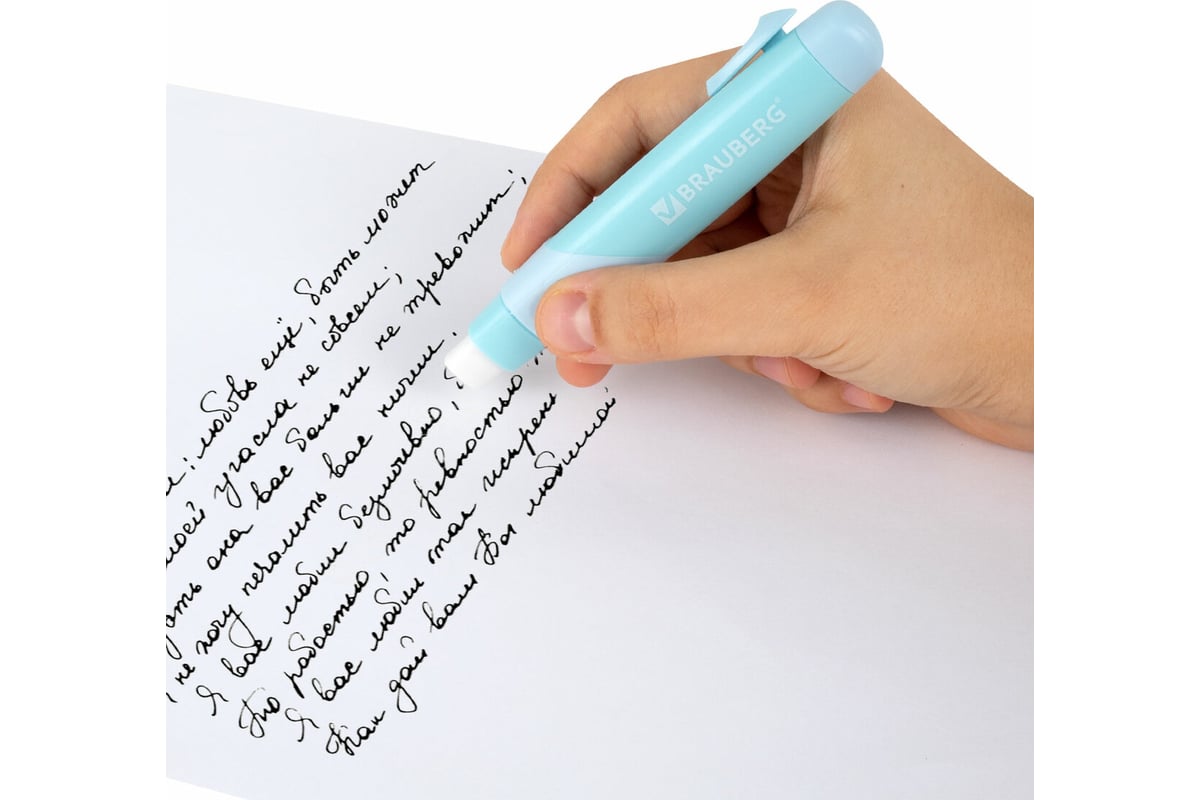 : любовь ещё, быть может
моей угасла не совсем;
она вас больше не тревожит;
не хочу печалить вас ничем.
Я вас любил безмолвно,
То робостью, то ревностью
Я вас любил так искрен
Как дай вам Бог любимой
BRAUBERG®